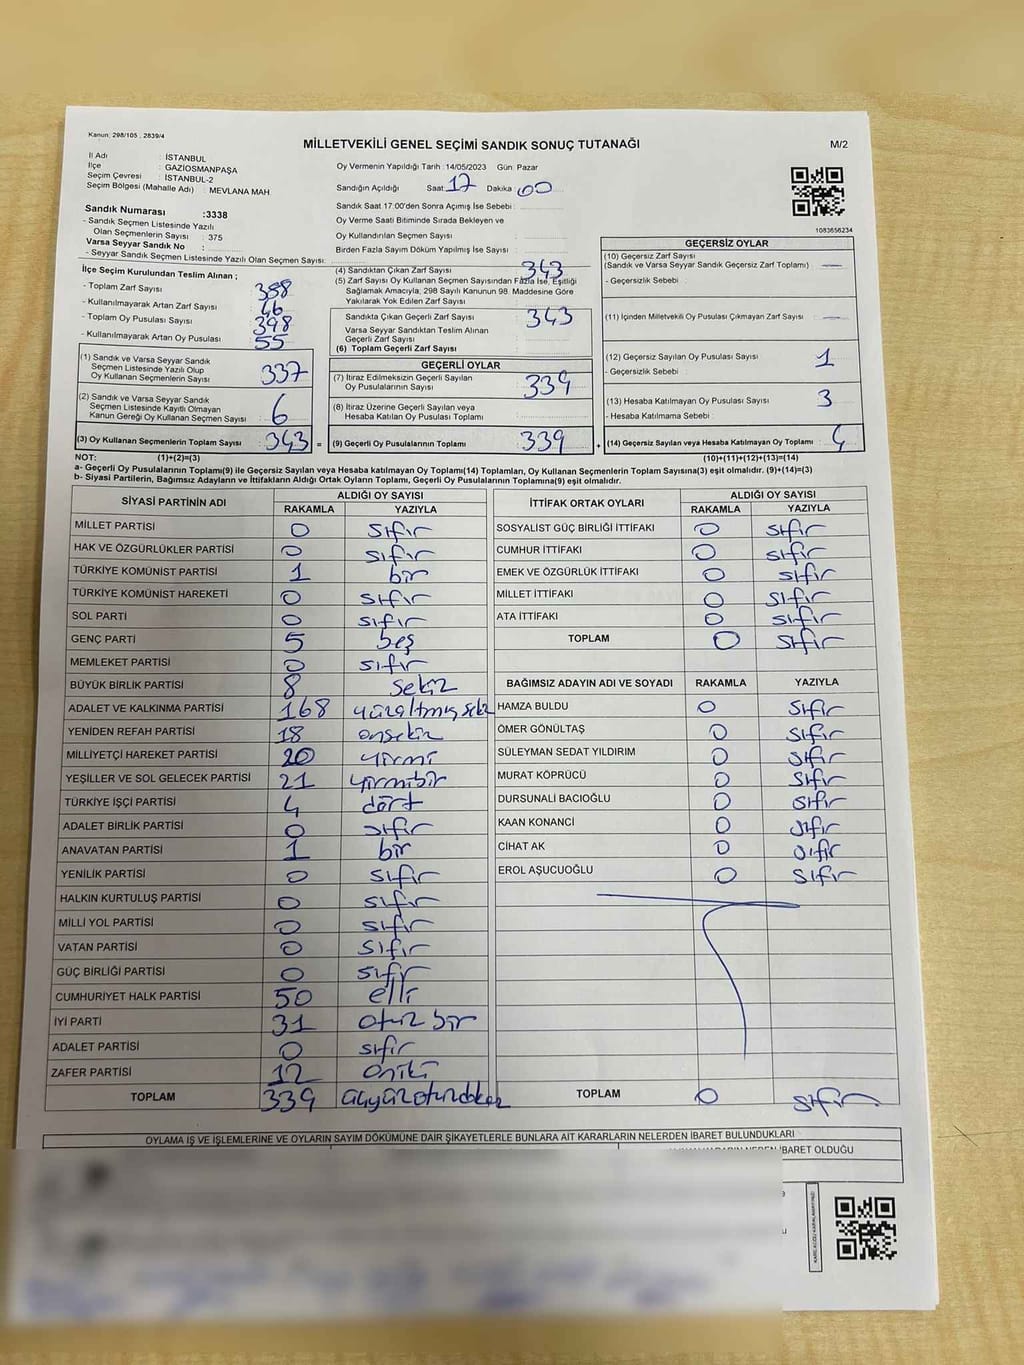 Kanun: 298/105 , 2839/4
MİLLETVEKİLİ GENEL SEÇİMİ SANDIK SONUÇ TUTANAĞI
M/2
İl Adı : İSTANBUL
İlçe : GAZİOSMANPAŞA
Seçim Çevresi : İSTANBUL-2
Seçim Bölgesi (Mahalle Adı) : MEVLANA MAH
Sandık Numarası :3338
- Sandık Seçmen Listesinde Yazılı
Olan Seçmenlerin Sayısı : 375
Varsa Seyyar Sandık No :
- Seyyar Sandık Seçmen Listesinde Yazılı Olan Seçmen Sayısı:
Oy Vermenin Yapıldığı Tarih :14/05/2023 Gün: Pazar
Sandığın Açıldığı Saat: 17 Dakika: 00
Sandık Saat 17:00'den Sonra Açımış İse Sebebi :
Oy Verme Saati Bitiminde Sırada Bekleyen ve
Oy Kullandırılan Seçmen Sayısı :
Birden Fazla Sayım Döküm Yapılmış İse Sayısı :
1083656234
İlçe Seçim Kurulundan Teslim Alınan ;
- Toplam Zarf Sayısı : 388
- Kullanılmayarak Artan Zarf Sayısı : 46
- Toplam Oy Pusulası Sayısı : 398
- Kullanılmayarak Artan Oy Pusulası : 55
(1) Sandık ve Varsa Seyyar Sandık
Seçmen Listesinde Yazılı Olup
Oy Kullanan Seçmenlerin Sayısı : 337
(2) Sandık ve Varsa Seyyar Sandık
Seçmen Listesinde Kayıtlı Olmayan
Kanun Gereği Oy Kullanan Seçmen Sayısı : 6
(3) Oy Kullanan Seçmenlerin Toplam Sayısı : 343 =
(4) Sandıktan Çıkan Zarf Sayısı : 343
(5) Zarf Sayısı Oy Kullanan Seçmen Sayısından Fazla İse, Eşitliği
Sağlamak Amacıyla, 298 Sayılı Kanunun 98. Maddesine Göre
Yakılarak Yok Edilen Zarf Sayısı :
Sandıkta Çıkan Geçerli Zarf Sayısı : 343
Varsa Seyyar Sandıktan Teslim Alınan
Geçerli Zarf Sayısı :
(6) Toplam Geçerli Zarf Sayısı :
GEÇERLİ OYLAR
(7) İtiraz Edilmeksizin Geçerli Sayılan
Oy Pusulalarının Sayısı : 339
(8) İtiraz Üzerine Geçerli Sayılan veya
Hesaba Katılan Oy Pusulası Toplamı :
(9) Geçerli Oy Pusulalarının Toplamı : 339 +
GEÇERSİZ OYLAR
(10) Geçersiz Zarf Sayısı
(Sandık ve Varsa Seyyar Sandık Geçersiz Zarf Toplamı) : —
- Geçersizlik Sebebi :
(11) İçinden Milletvekili Oy Pusulası Çıkmayan Zarf Sayısı : —
(12) Geçersiz Sayılan Oy Pusulası Sayısı : 1
- Geçersizlik Sebebi :
(13) Hesaba Katılmayan Oy Pusulası Sayısı : 3
- Hesaba Katılmama Sebebi :
(14) Geçersiz Sayılan veya Hesaba Katılmayan Oy Toplamı : 4
NOT: (1)+(2)=(3) (10)+(11)+(12)+(13)=(14)
a- Geçerli Oy Pusulalarının Toplamı(9) ile Geçersiz Sayılan veya Hesaba katılmayan Oy Toplamı(14) Toplamları, Oy Kullanan Seçmenlerin Toplam Sayısına(3) eşit olmalıdır. (9)+(14)=(3)
b- Siyasi Partilerin, Bağımsız Adayların ve İttifakların Aldığı Ortak Oyların Toplamı, Geçerli Oy Pusulalarının Toplamına(9) eşit olmalıdır.
SİYASİ PARTİNİN ADI ALDIĞI OY SAYISI
RAKAMLA YAZIYLA
MİLLET PARTİSİ 0 sıfır
HAK VE ÖZGÜRLÜKLER PARTİSİ 0 sıfır
TÜRKİYE KOMÜNİST PARTİSİ 1 bir
TÜRKİYE KOMÜNİST HAREKETİ 0 sıfır
SOL PARTİ 0 sıfır
GENÇ PARTİ 5 beş
MEMLEKET PARTİSİ 0 sıfır
BÜYÜK BİRLİK PARTİSİ 8 sekiz
ADALET VE KALKINMA PARTİSİ 168 yüzaltmışsekiz
YENİDEN REFAH PARTİSİ 18 onsekiz
MİLLİYETÇİ HAREKET PARTİSİ 20 yirmi
YEŞİLLER VE SOL GELECEK PARTİSİ 21 yirmibir
TÜRKİYE İŞÇİ PARTİSİ 4 dört
ADALET BİRLİK PARTİSİ 0 sıfır
ANAVATAN PARTİSİ 1 bir
YENİLİK PARTİSİ 0 sıfır
HALKIN KURTULUŞ PARTİSİ 0 sıfır
MİLLİ YOL PARTİSİ 0 sıfır
VATAN PARTİSİ 0 sıfır
GÜÇ BİRLİĞİ PARTİSİ 0 sıfır
CUMHURİYET HALK PARTİSİ 50 elli
İYİ PARTİ 31 otuz bir
ADALET PARTİSİ 0 sıfır
ZAFER PARTİSİ 12 oniki
TOPLAM 339 üçyüzotuzdokuz
İTTİFAK ORTAK OYLARI ALDIĞI OY SAYISI
RAKAMLA YAZIYLA
SOSYALİST GÜÇ BİRLİĞİ İTTİFAKI 0 sıfır
CUMHUR İTTİFAKI 0 sıfır
EMEK VE ÖZGÜRLÜK İTTİFAKI 0 sıfır
MİLLET İTTİFAKI 0 sıfır
ATA İTTİFAKI 0 sıfır
TOPLAM 0 sıfır
BAĞIMSIZ ADAYIN ADI VE SOYADI RAKAMLA YAZIYLA
HAMZA BULDU 0 sıfır
ÖMER GÖNÜLTAŞ 0 sıfır
SÜLEYMAN SEDAT YILDIRIM 0 sıfır
MURAT KÖPRÜCÜ 0 sıfır
DURSUNALİ BACIOĞLU 0 sıfır
KAAN KONANCİ 0 sıfır
CİHAT AK 0 sıfır
EROL AŞUCUOĞLU 0 sıfır
TOPLAM 0 sıfır
OYLAMA İŞ VE İŞLEMLERİNE VE OYLARIN SAYIM DÖKÜMÜNE DAİR ŞİKAYETLERLE BUNLARA AİT KARARLARIN NELERDEN İBARET BULUNDUKLARI
İBARET OLDUĞU